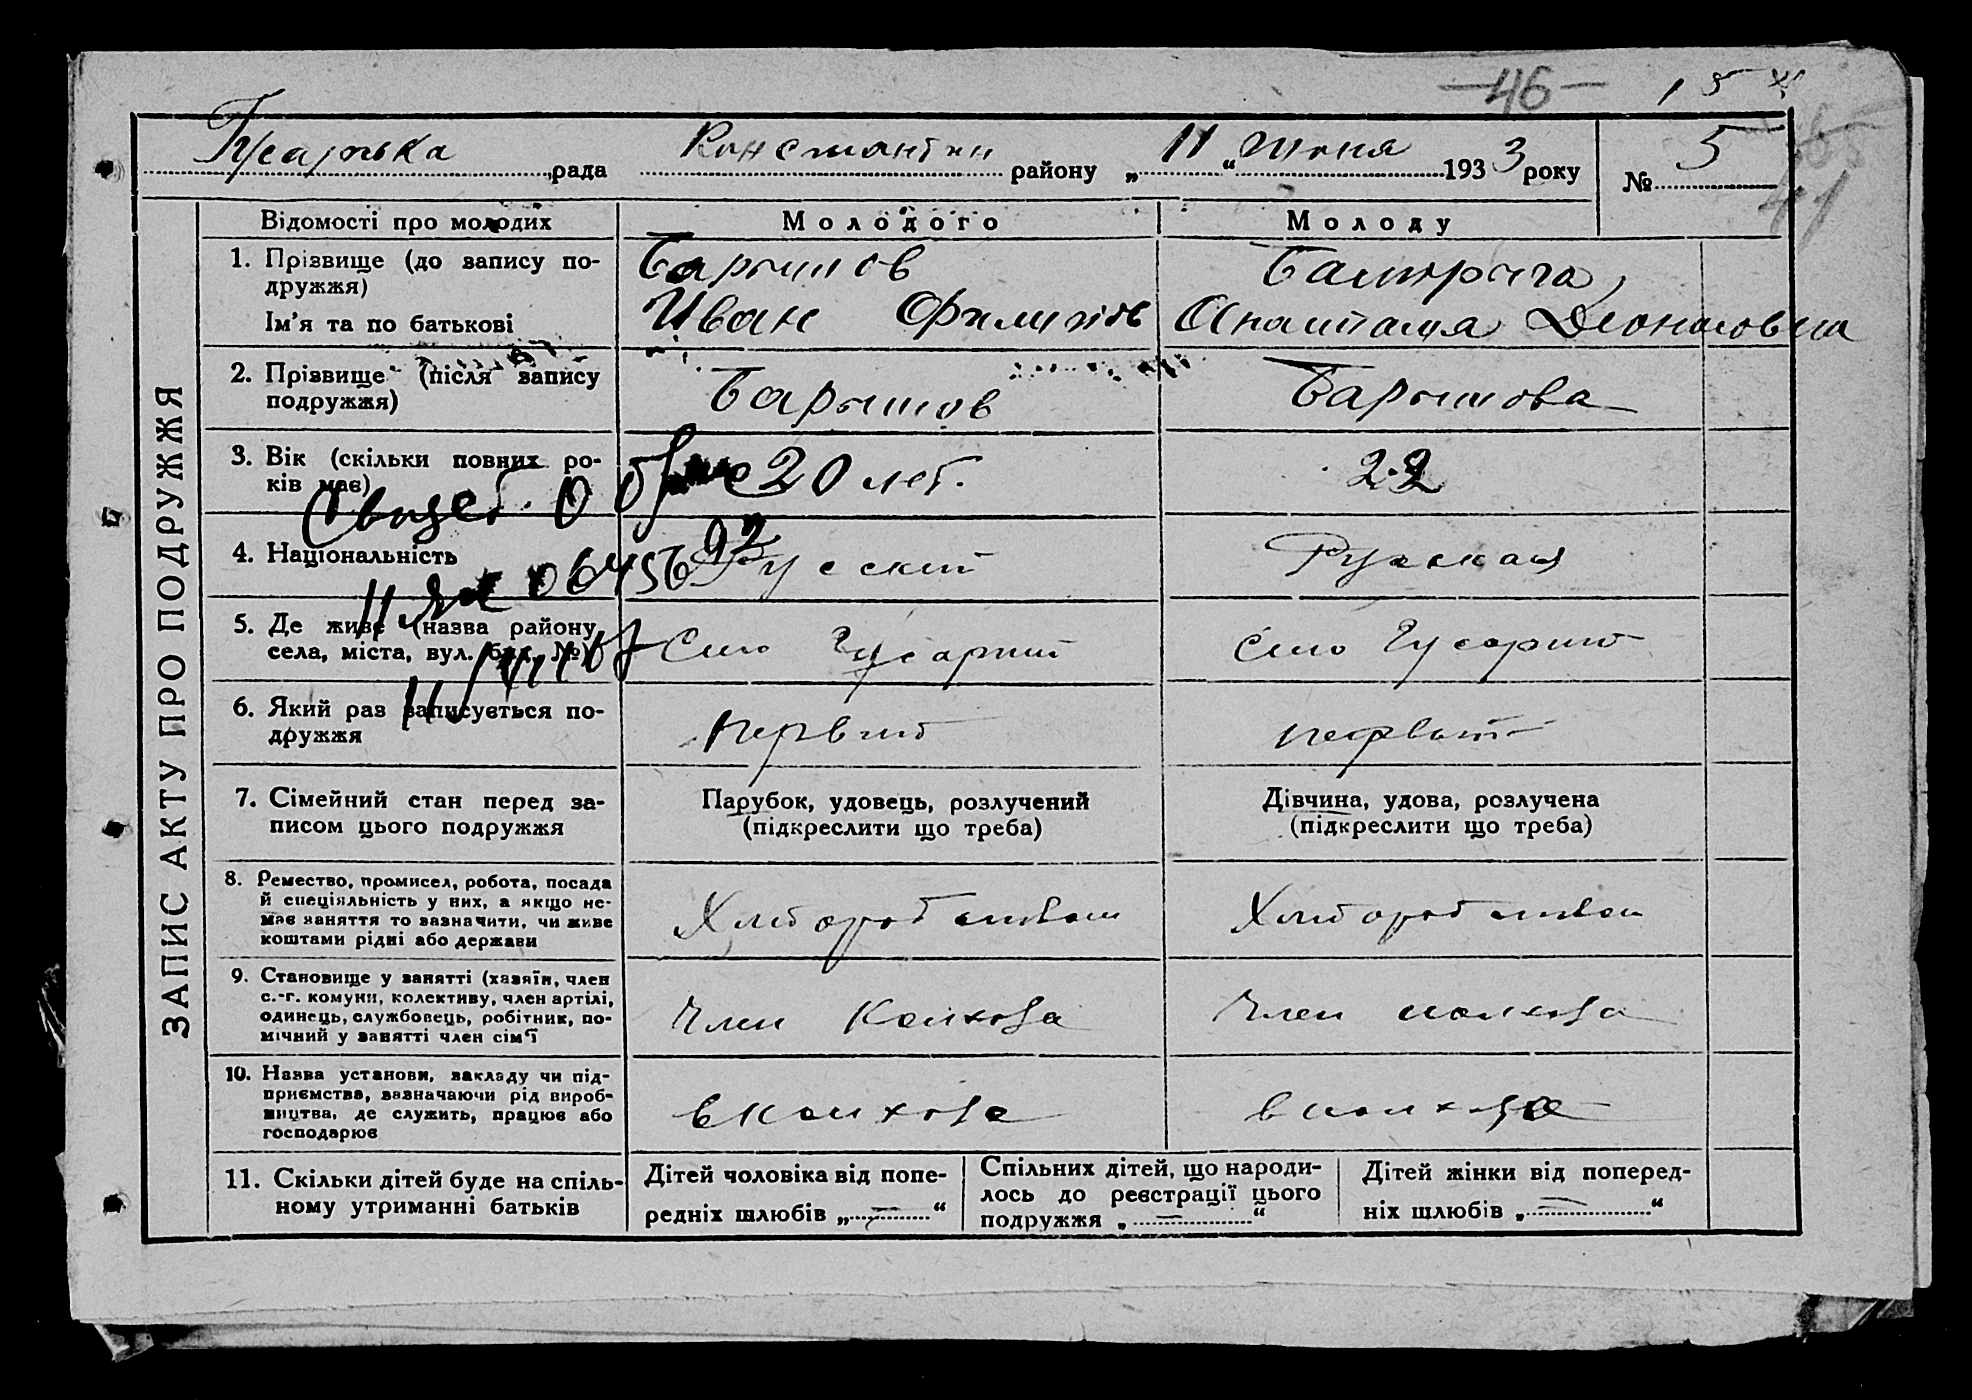 -46- 15
Гусарська рада Константин району „11“ Июня 1933 року № 5
41
ЗАПИС АКТУ ПРО ПОДРУЖЖЯ
Відомості про молодих
Молодого
Молоду
1. Прізвище (до запису по-
дружжя)
Ім'я та по батькові
Барышов
Иван Филипов
Анастасия
2. Прізвище (після запису
подружжя)
Барышов
Барышова
3. Вік (скільки повних ро-
ків має)
20 лет.
22
Свидет. о
064156
92
4. Національність
Русский
Русская
5. Де живе (назва району,
села, міста, вул. буд. №)
Село Гусарки
Село Гусарки
6. Який раз записується по-
дружжя
первый
первый
7. Сімейний стан перед за-
писом цього подружжя
Парубок, удовець, розлучений
(підкреслити що треба)
Дівчина, удова, розлучена
(підкреслити що треба)
8. Ремество, промисел, робота, посада
й спеціяльність у них, а якщо не-
має заняття то зазначити, чи живе
коштами рідні або держави
9. Становище у занятті (хазяїн, член
с.-г. комуни, колективу, член артілі,
одинець, службовець, робітник, по-
мічний у занятті член сім'ї
Член Колхоза
Член колхоза
10. Назва установи, закладу чи під-
приємства, зазначаючи рід вироб-
ництва, де служить, працює або
господарює
в колхозе
в колхозе
11. Скільки дітей буде на спіль-
ному утриманні батьків
Дітей чоловіка від попе-
редніх шлюбів „—“
Спільних дітей, що народи-
лось до реєстрації цього
подружжя „—“
Дітей жінки від поперед-
ніх шлюбів „—“